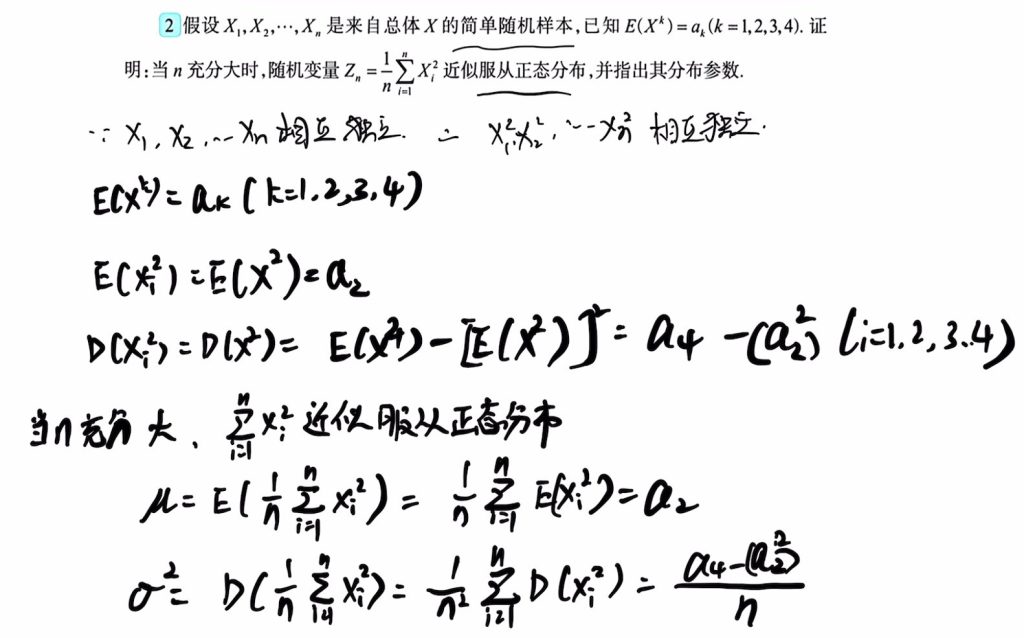 2 假设 X₁,X₂,⋯,Xₙ 是来自总体 X 的简单随机样本,已知 E(Xᵏ)=aₖ(k=1,2,3,4). 证
明:当 n 充分大时,随机变量 Zₙ = 1/n ∑_{i=1}^{n} Xᵢ² 近似服从正态分布,并指出其分布参数.
∵ X₁, X₂, ⋯ Xₙ 相互独立. ∴ X₁², X₂², ⋯ Xₙ² 相互独立.
E(Xᵏ) = aₖ (k=1,2,3,4)
E(Xᵢ²) = E(X²) = a₂
D(Xᵢ²) = D(X²) = E(X⁴) − [E(X²)]² = a₄ − (a₂²) (i=1,2,3,4)
当n充分大、∑_{i=1}^{n} Xᵢ² 近似服从正态分布
μ = E(1/n ∑_{i=1}^{n} Xᵢ²) = 1/n ∑_{i=1}^{n} E(Xᵢ²) = a₂
σ² = D(1/n ∑_{i=1}^{n} Xᵢ²) = 1/n² ∑_{i=1}^{n} D(Xᵢ²) = a₄−(a₂²)/n